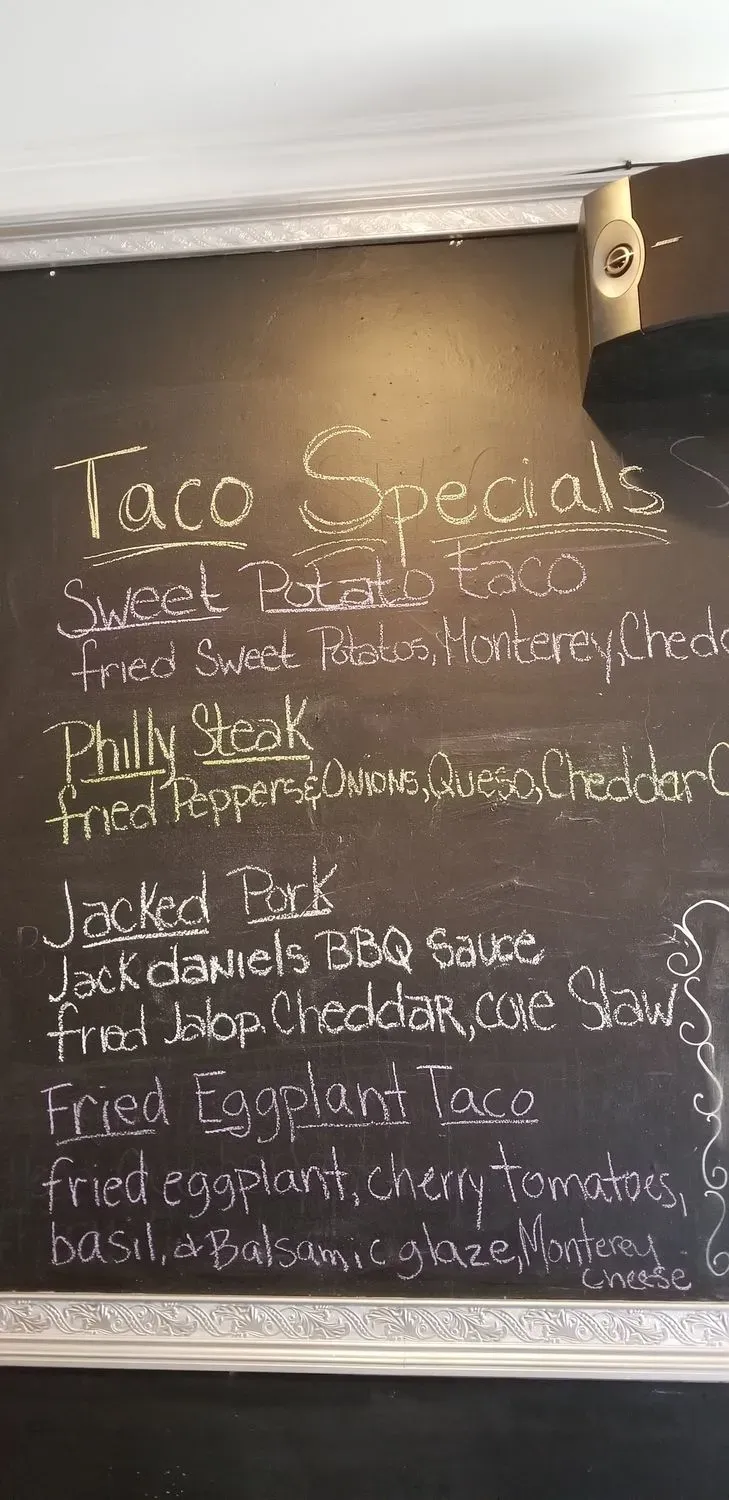 Taco Specials
Sweet Potato taco
fried Sweet Potatos, Monterey, Chedd
Philly Steak
fried Peppers & Onions, Queso, Cheddar C
Jacked Pork
Jack daniels BBQ Sauce
fried Jalop. Cheddar, cole Slaw
Fried Eggplant Taco
fried eggplant, cherry tomatoes,
basil, & Balsamic glaze, Monterey
cheese